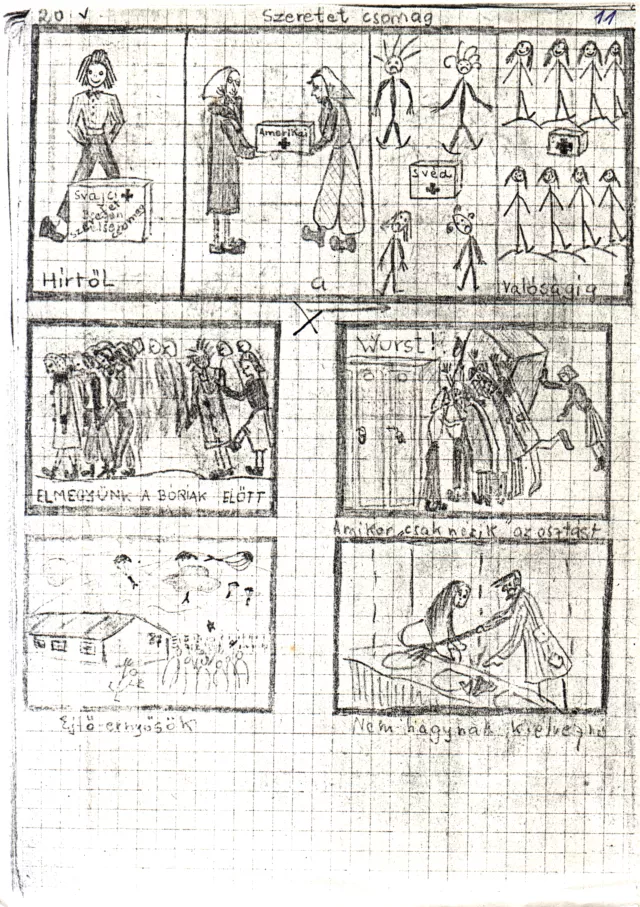 20. √
Szeretet csomag
11
Amerikai
Svéd
Svájci
csomag
Hírtől
a
valóságig
Wurst!!
ELMEGYÜNK A BORIAK ELŐTT
Amikor „csak nézik" az osztást
Ejtő-ernyősök
Nem hagynak kielvezni